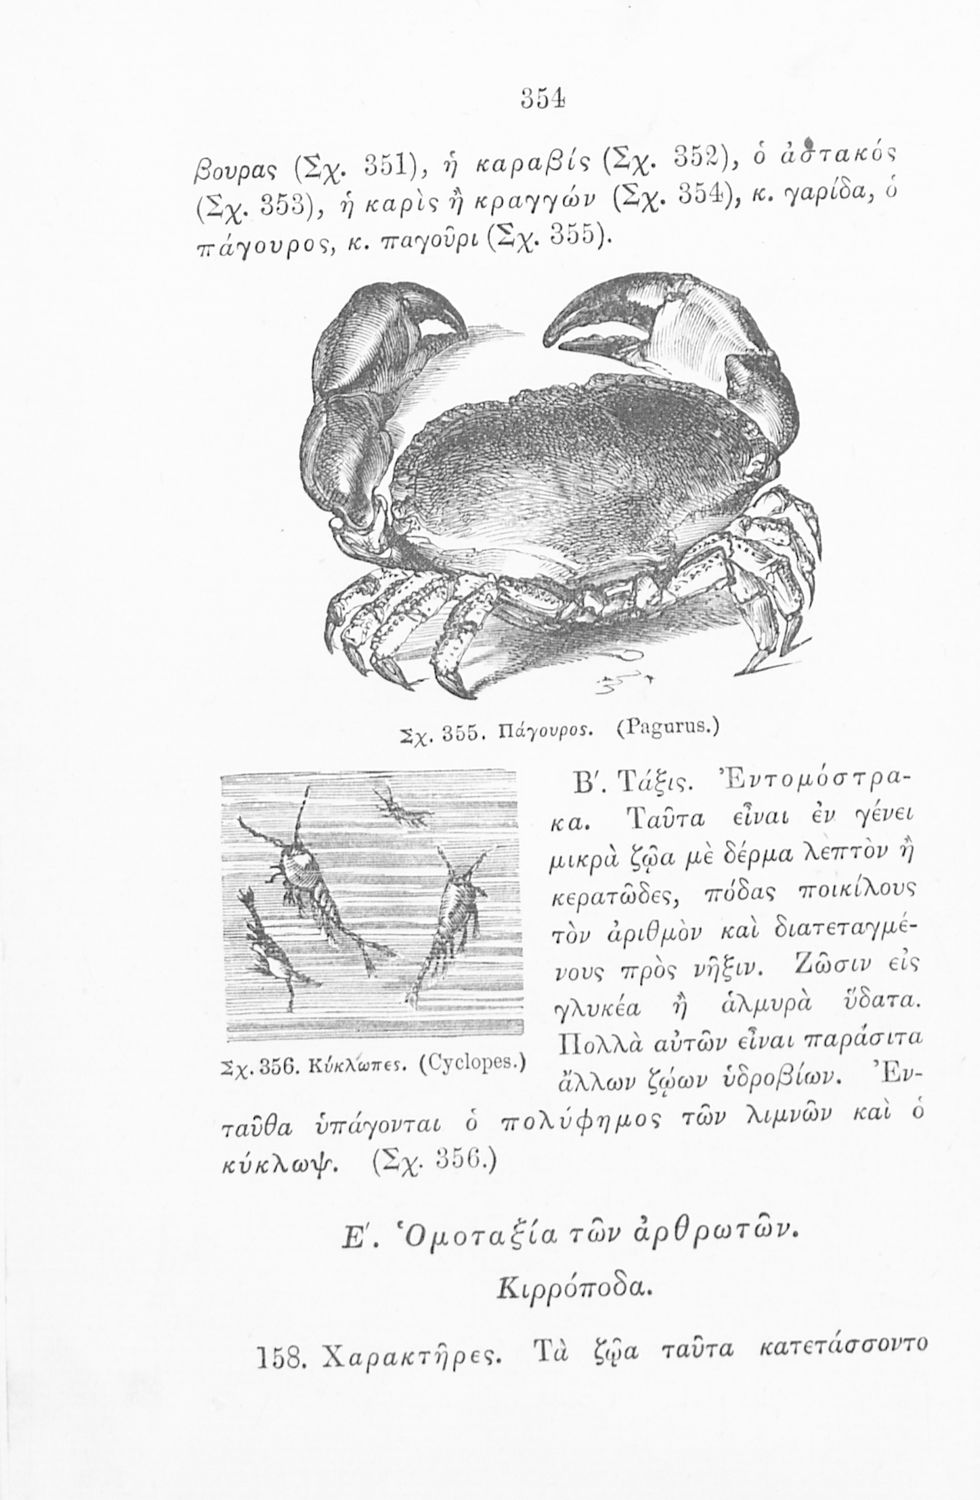 354
βουρας (Σχ. 351), ἡ καραβίς (Σχ. 352), ὁ ἀστακός
(Σχ. 353), ἡ καρὶς ἢ κραγγών (Σχ. 354), κ. γαρίδα, ὁ
πάγουρος, κ. παγοῦρι (Σχ. 355).
Σχ. 355. Πάγουρος. (Pagurus.)
Β′. Τάξις. Ἐντομόστρα-
κα. Ταῦτα εἶναι ἐν γένει
μικρὰ ζῷα μὲ δέρμα λεπτὸν ἢ
κερατῶδες, πόδας ποικίλους
τὸν ἀριθμὸν καὶ διατεταγμέ-
νους πρὸς νῆξιν. Ζῶσιν εἰς
γλυκέα ἢ ἁλμυρὰ ὕδατα.
Πολλὰ αὐτῶν εἶναι παράσιτα
ἄλλων ζῴων ὑδροβίων. Ἐν-
Σχ. 356. Κύκλωπες. (Cyclopes.)
ταῦθα ὑπάγονται ὁ πολύφημος τῶν λιμνῶν καὶ ὁ
κύκλωψ. (Σχ. 356.)
Ε′. Ὁμοταξία τῶν ἀρθρωτῶν.
Κιρρόποδα.
158. Χαρακτῆρες. Τὰ ζῷα ταῦτα κατετάσσοντο